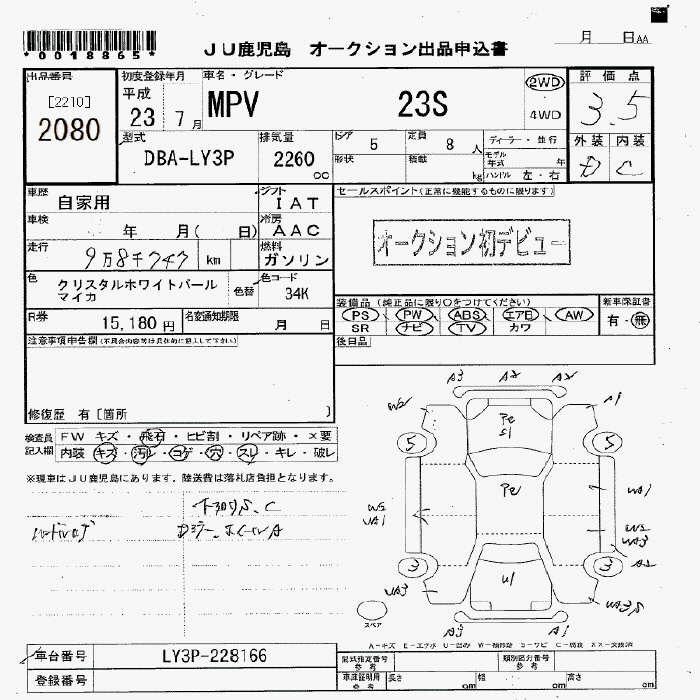 *0018865*
JU鹿児島 オークション出品申込書
月 日AA
出品番号
[2210]
2080
初度登録年月
平成
23 7月
車名・グレード
MPV 23S
2WD
4WD
評価点
3.5
外装 内装
D C
型式
DBA-LY3P
排気量
2260
cc
ドア 5
形状
定員 8 人
積載 kg
ディーラー・並行
モデル年式 年
ハンドル 左・右
車歴
自家用
シフト
IAT
車検
年 月( 日)
冷房
AAC
走行
9万8千747 km
燃料
ガソリン
色
クリスタルホワイトパール
マイカ
色替
色コード
34K
R券
15,180円
名変通知期限
月 日
セールスポイント(正常に機能するものに限ります)
オークション初デビュー
装備品(純正品に限り〇をつけてください)
PS PW ABS エアB AW
SR ナビ TV カワ
新車保証書
有・無
後日品
注意事項申告欄(不具合内容等は具体的に記入して下さい)
修復歴 有[箇所 ]
検査員
記入欄
FW キズ・飛石・ヒビ割・リペア跡・×要
内装 キズ・汚レ・コゲ・穴・スレ・キレ・破レ
※現車はJU鹿児島にあります。陸送費は落札店負担となります。
A3 A2 A2
W2 A1
Pe
S1
5 5
Pe
W2
UA1
UA1
W2
UA3
A2
3 3
U1
UA3
UA3,S
A3 A1
スペア
A-キズ E-エクボ U-凹み W-補修跡 S-サビ C-腐食 XX-交換済
車台番号
LY3P-228166
登録番号
型式指定番号
類別区分番号
車庫証明用
参考
長さ cm 幅 cm 高さ cm